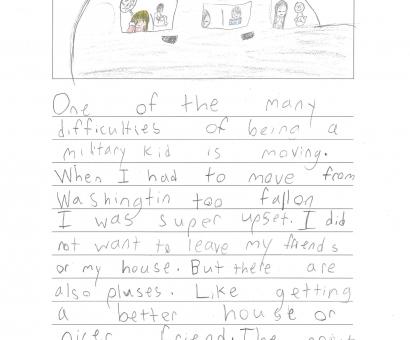 One of the many
difficulties of being a
military kid is moving.
When I had to move from
Washingtin too fallon
I was super upset. I did
not want to leave my friends
or my house. But there are
also pluses. Like getting
a better house or
nicer friend. The